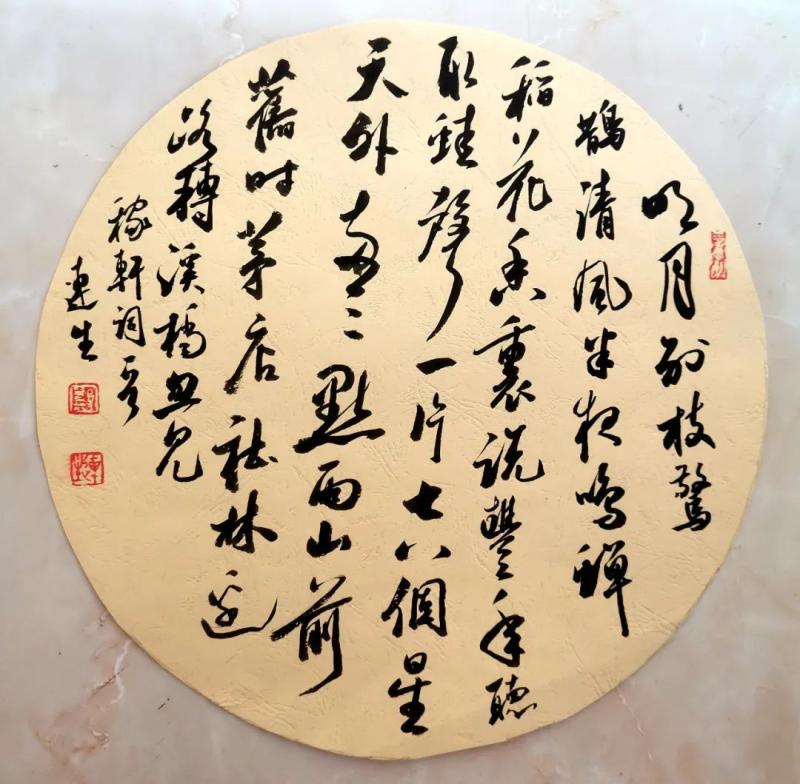 明月別枝驚
鵲清風半夜鳴蟬
稻花香裏說豐年聽
取蛙聲一片七八個星
天外兩三點雨山前
舊时茅店社林邊
路轉溪橋忽見
稼軒詞
連生